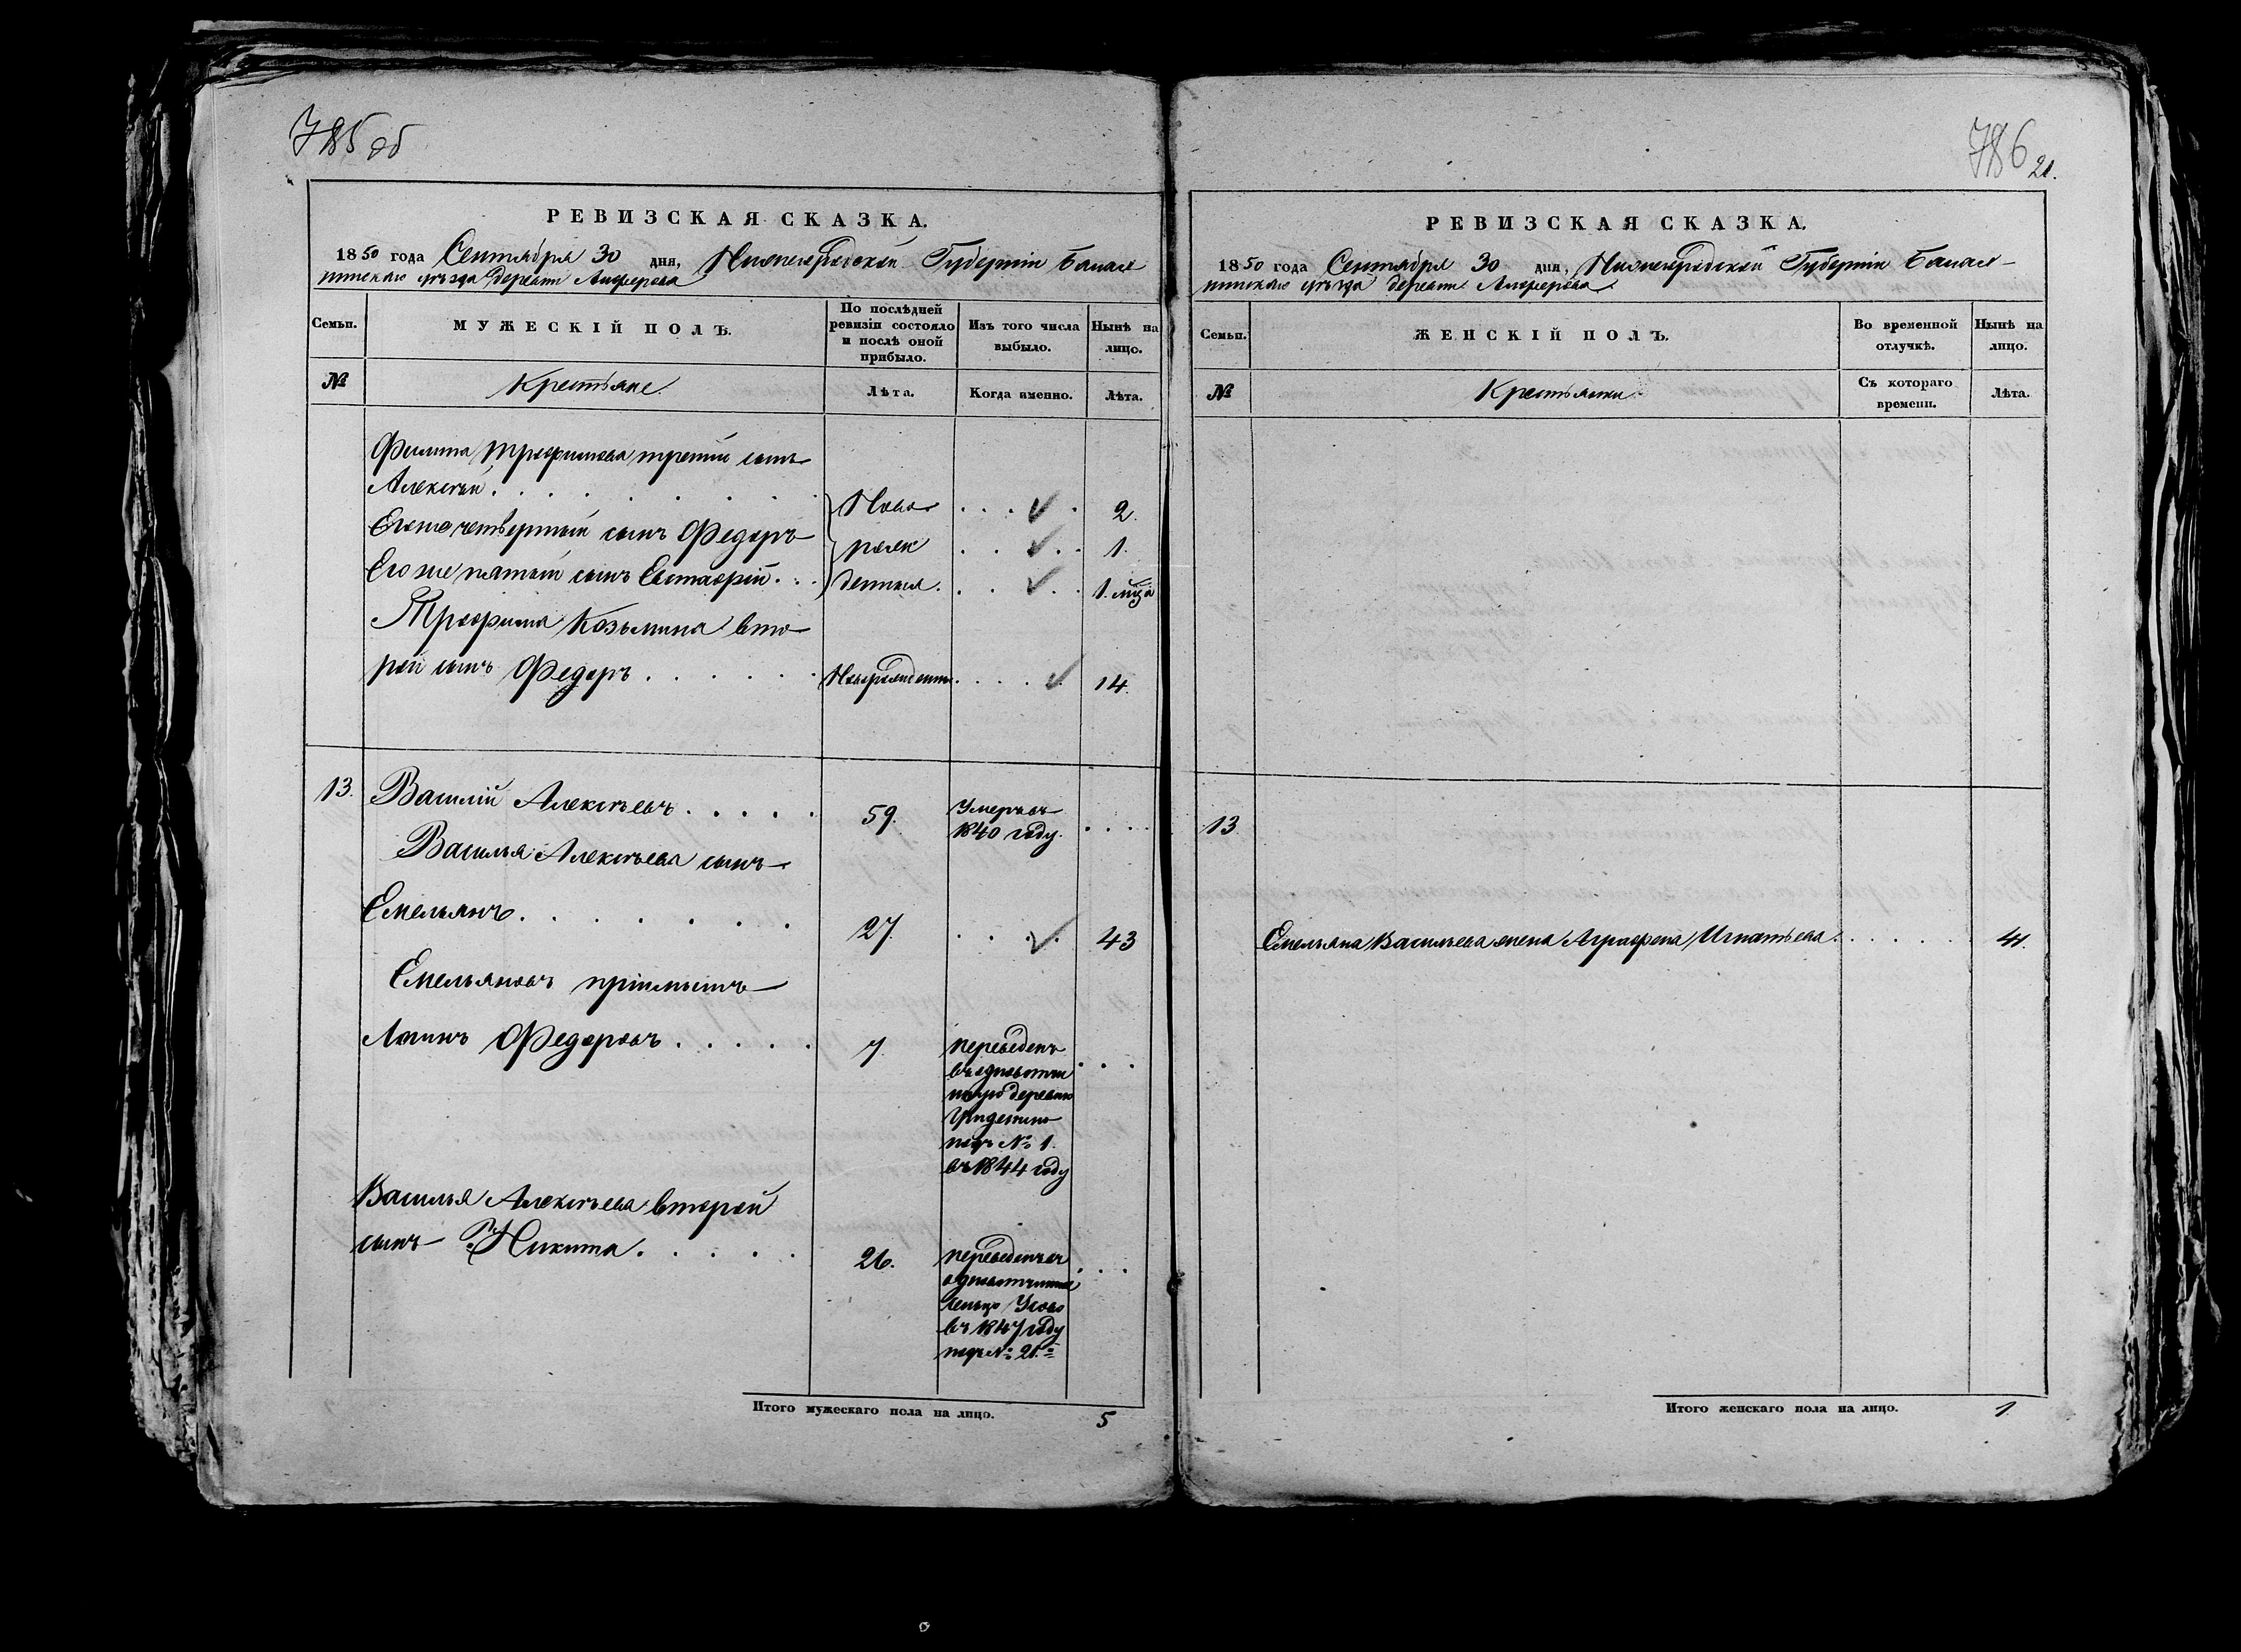 785 об
РЕВИЗСКАЯ СКАЗКА.
1850 года Сентября 30 дня, Нижегородской Губерніи Балах-
нинскаго уѣзда деревни Анферова
Семьи.
МУЖЕСКІЙ ПОЛЪ.
По послѣдней
ревизіи состояло
и послѣ оной
прибыло.
Изъ того числа
выбыло.
Нынѣ на
лицо.
№
Крестьяне.
Лѣта.
Когда именно.
Лѣта.
Филипа Трофимова третій сынъ
Алексѣй
Ново 2.
Егоже четвертый сынъ Федоръ
рож 1.
Его же пятый сынъ Евстафій
денныя. 1. мѣ
Трофима Козьмина вто-
рой сынъ Федоръ Новорожденъ 14.
13. Василій Алексѣевъ 59. Умеръ въ
1840 году.
Василья Алексѣева сынъ
Емельянъ 27. 43
Емельяновъ пріимышъ
Федоровъ 7. переведенъ
въ одновотчин
ную деревню
подъ № 1.
въ 1844 году
Василья Алексѣева второй
сынъ Никита 26. переведенъ въ
одновотчинное
въ 1847 году
подъ № 21.
Итого мужескаго пола на лицо. 5
786
21.
РЕВИЗСКАЯ СКАЗКА.
1850 года Сентября 30 дня, Нижегородской Губерніи Балах-
нинскаго уѣзда деревни Анферова
Семьи.
ЖЕНСКІЙ ПОЛЪ.
Во временной
отлучкѣ.
Нынѣ на
лицо.
№
Крестьянки
Съ котораго
времени.
Лѣта.
13
Емельяна Васильева жена Аграфена Игнатьева 41.
Итого женскаго пола на лицо. 1.